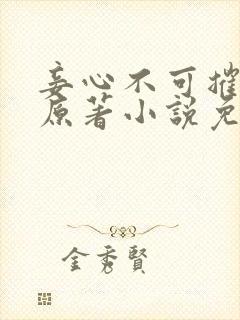 妾心不可摧
原著小説免
金秀賢